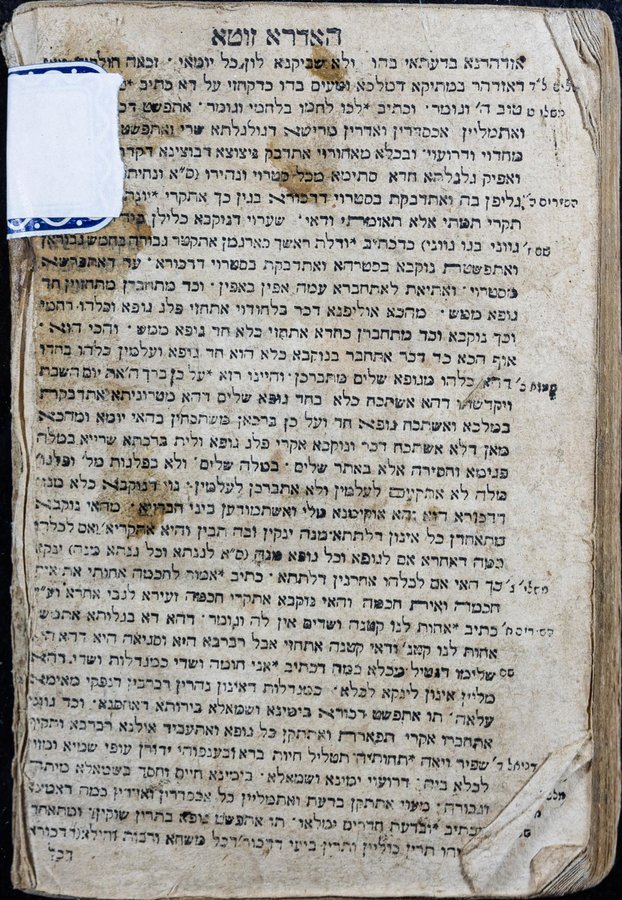 האדרא זוטא
אזדהרנא בדעתאי בהו ולא שביקנא לון כל יומאי · זכאה
דאזדהר במתיקא דמלכא וטעים בהו כדקחזי על דא כתיב
טוב ה' וגומר · וכתיב לכו לחמו בלחמי וגומר · אתפשט
ואתמליין אכסדרין ואדרין מרישא דגולגלתא שרי ואתפשט
מחדוי ודרועוי · ובכלא מאחורוי אתדבק ניצוצא דבוצינא
ואפיק גלגלתא חדא סתימא מכל סטרוי ונהירו (ס"א
גליפן בה ואתדבקת בסטרוי דדכורא בגין כך אתקרי
תקרי תמתי אלא תאומתי ודאי · שערוי דנוקבא כלילן
גווני בגו גווני) כדכתיב ודלת ראשך כארגמן אתקטר גבורה בחמש גבוראן
ואתפשטת נוקבא בסטרהא ואתדבקת בסטרוי דדכורא · עד דאתפרשא
מסטרוי · ואתיאת לאתחברא עמה אפין באפין · וכד מתחברן מתחזיין חד
גופא ממש · מהכא אוליפנא דכר בלחודוי אתחזי פלג גופא וכלהו רחמי
וכך נוקבא וכד מתחברן כחדא אתחזי כלא חד גופא ממש · והכי הוא ·
אוף הכא כד דכר אתחבר בנוקבא כלא הוא חד גופא ועלמין כלהו בחדו
דהא כלהו מגופא שלים מתברכן · והיינו רזא על כן ברך ה' את יום השבת
ויקדשהו דהא אשתכח כלא בחד גופא שלים דהא מטרוניתא אתדבקת
במלכא ואשתכח גופא חד ועל כן ברכאן משתכחין בהאי יומא ומהכא
מאן דלא אשתכח דכר ונוקבא אקרי פלג גופא ולית ברכתא שרייא במלה
פגימא וחסירה אלא באתר שלים · במלה שלים · ולא בפלגות מל' ופלגו
מלה לא אתקיים לעלמין ולא אתברכן לעלמין · נוי דנוקבא כלא מנוי
דדכורא הוא והא אוקימנא מלי ואשתמודען ביני חברייא · מהאי נוקבא
מתאחדן כל אינון דלתתא מנה ינקין ובה תבין והיא אתקריא אם לכלהו
כמה דאחרא אם לגופא וכל גופא מנה (ס"א לגנתא וכל גנתא מנה) ינקא
כך האי אם לכלהו אחרנין דלתתא · כתיב אמור לחכמה אחותי את אית
חכמה ואית חכמה והאי נוקבא אתקרי חכמה זעירא לגבי אחרא
כתיב אחות לנו קטנה ושדים אין לה וגומר · דהא דא בגלותא אתמש'
אחות לנו קטנ' ודאי קטנה אתחזי אבל רברבא היא וסגיאה היא דהא היא
שלימו דנטיל מכלא כמה דכתיב אני חומה ושדי כמגדלות ושדי דהא
מליין אינון לינקא לכלא · כמגדלות דאינון נהרין רברבין דנפקי מאימא
עלאה · תו אתפשט דכורא בימינא ושמאלא בירותא דאחסנא · וכד גווני
אתחברו אקרי תפארת ואתתקן כל גופא ואתעביד אילנא רברבא ותקיף
שפיר ויאה תחותיה תטליל חיות ברא ובענפוהי ידורן עופי שמיא ומזון
לכלא ביה · דרועוי ימינא ושמאלא · בימינא חיים וחסד בשמאלא מיתה
וגבורה · מעוי אתתקן בדעת ואתמליין כל אכסדרין ואדרין כמה דאמינא
דכתיב ובדעת חדרים ימלאו · תו אתפשט גופא בתרין שוקין ומתאחדן
תרין כוליין ותרין ביעי דדכורא דכל משחא ורבות וחילא דדכורא
דכל